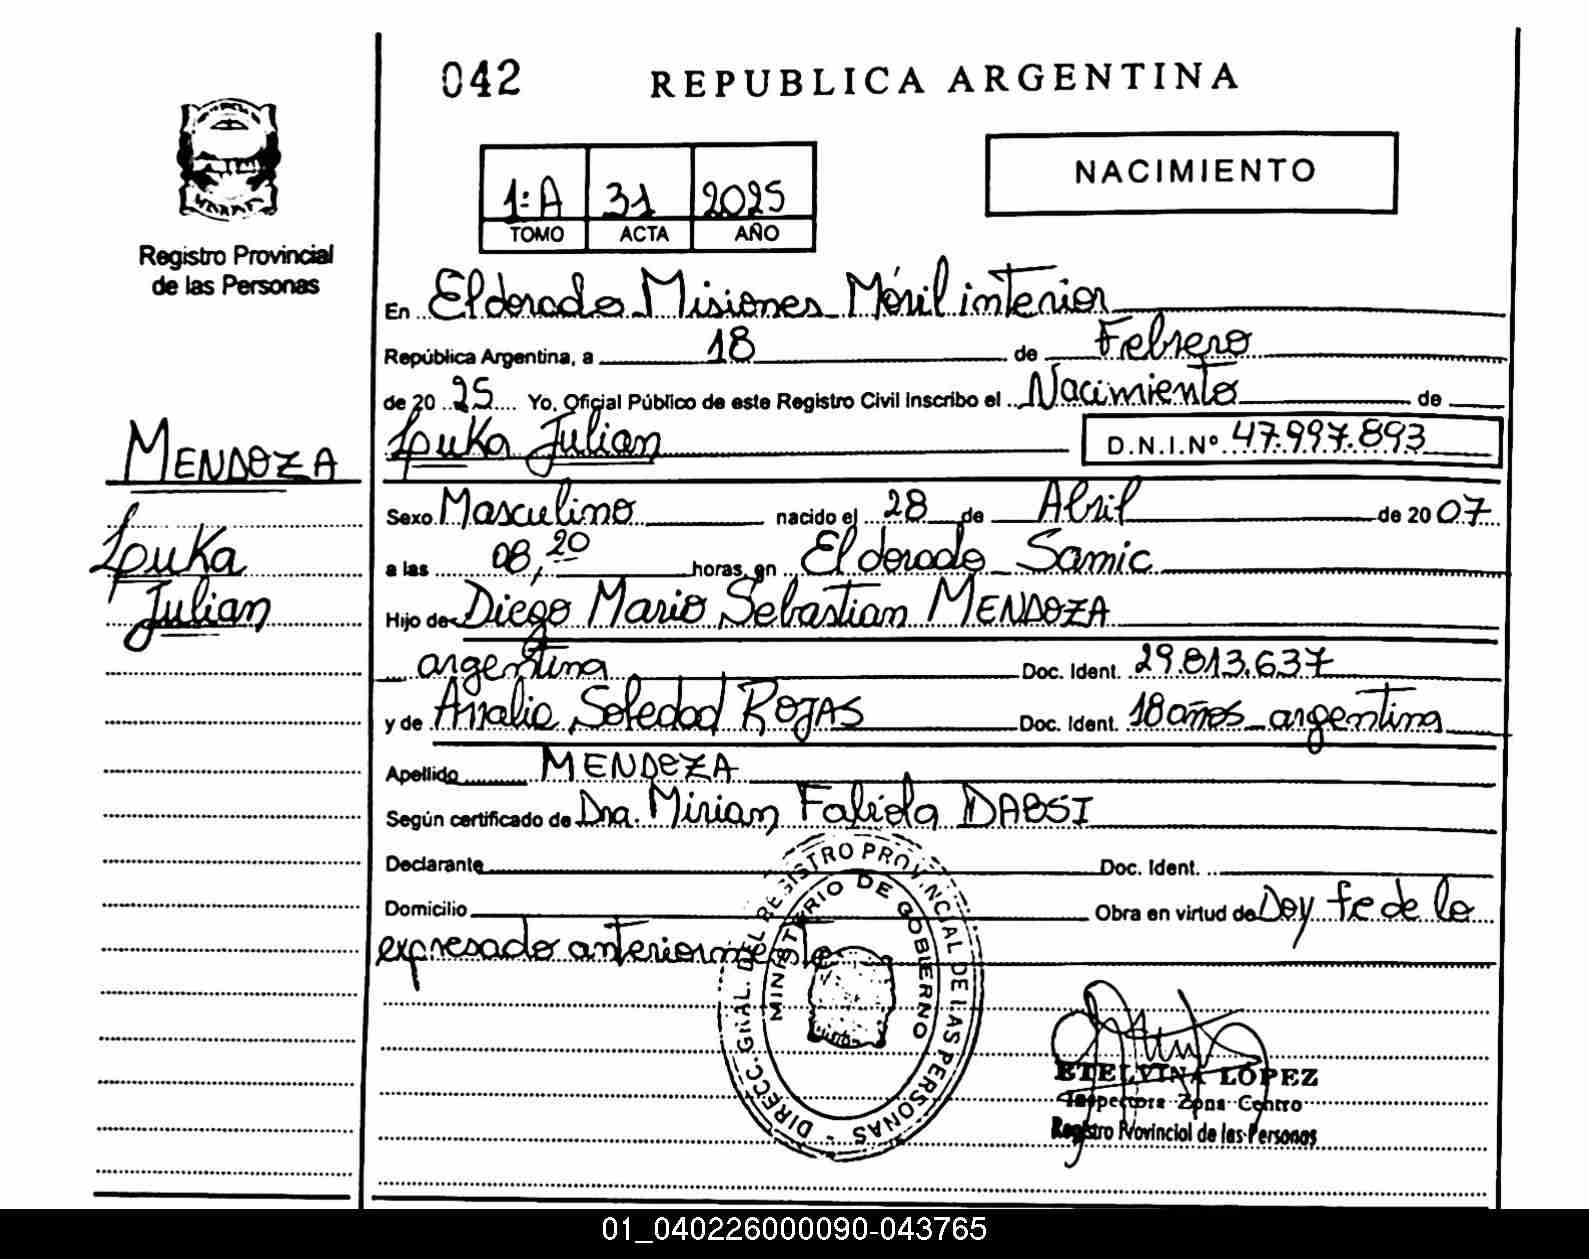 042
REPUBLICA ARGENTINA
1:A 31 2025
TOMO ACTA AÑO
NACIMIENTO
Registro Provincial
de las Personas
En Eldorado Misiones Móvil interior
República Argentina, a 18 de Febrero
de 2025 Yo, Oficial Público de este Registro Civil Inscribo el Nacimiento de
Luka Julian D.N.I.Nº 47.997.893
MENDOZA
Luka
Julian
Sexo Masculino nacido el 28 de Abril de 2007
a las 08,20 horas, en Eldorado Samic
Hijo de Diego Mario Sebastian MENDOZA
argentina Doc. Ident. 29.813.637
y de Analia Soledad ROJAS Doc. Ident. 18 años argentina
Apellido MENDOZA
Según certificado de Dra. Mirian Fabiola
Declarante Doc. Ident.
Domicilio Obra en virtud de Doy fe de lo
expresado anteriormente
DIRECC. GRAL. DEL REGISTRO PROVINCIAL DE LAS PERSONAS -
MINISTERIO DE GOBIERNO
ETELVINA LOPEZ
Inspectora Zona Centro
Registro Provincial de las Personas
01_040226000090-043765